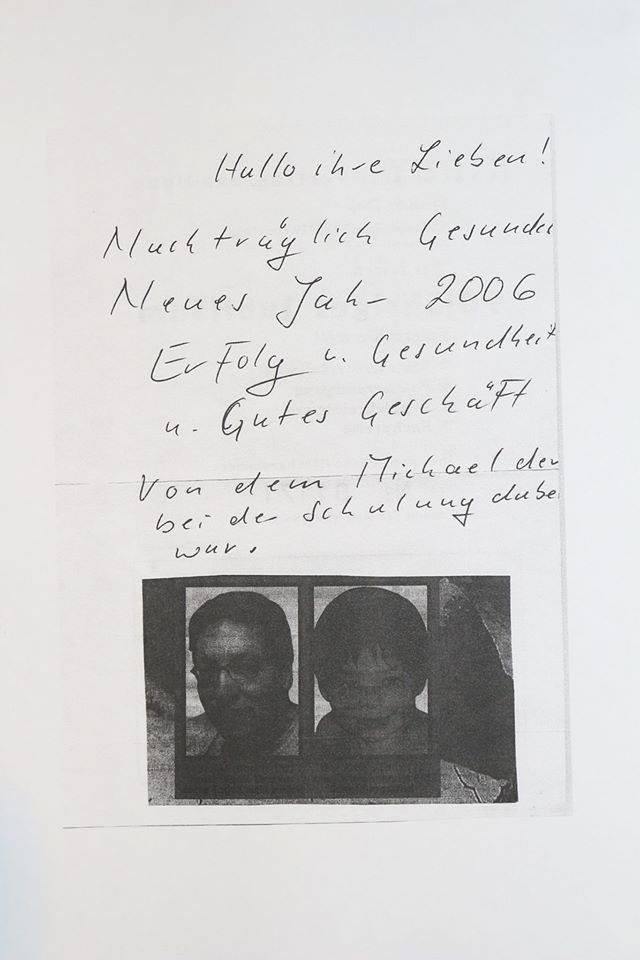 Hallo ihre Lieben!
Nachträglich Gesunde
Neues Jahr 2006
Erfolg u. Gesundheit
u. Gutes Geschäft
Von dem Michael der
bei der Schulung dabe
war.